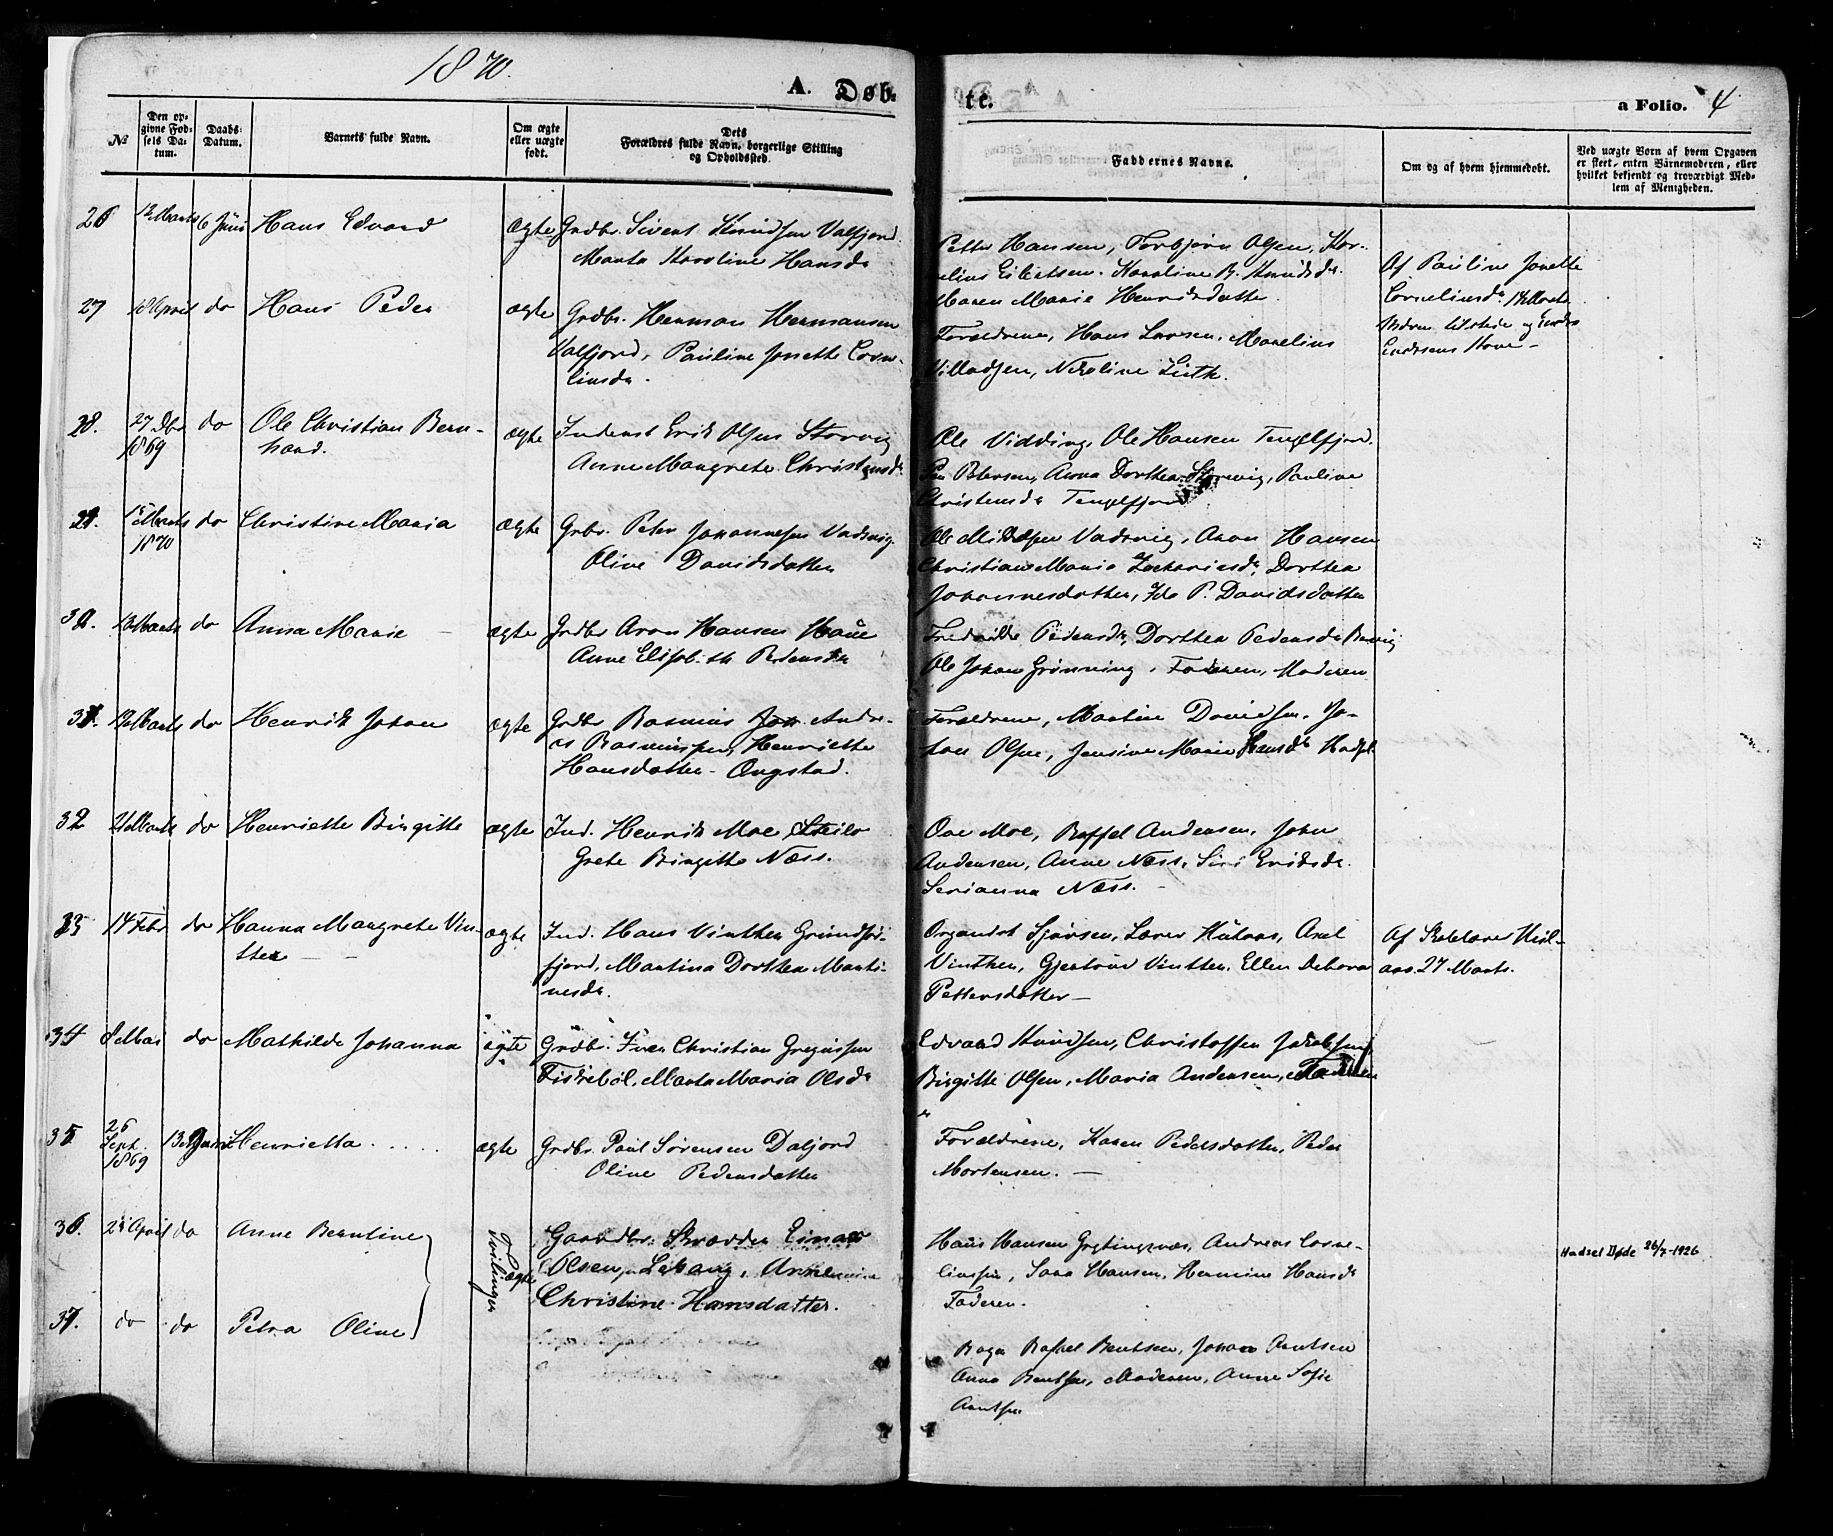 1870.
A. Døb-
te.
a Folio. 4
№
Den op-
givne Fød-
sels Da-
tum.
Daabs-
Datum.
Barnets fulde Navn.
Om ægte
eller uægte
født.
Dets
Forældres fulde Navn, borgerlige Stilling
og Opholdssted.
Faddernes Navne.
Om og af hvem hjemmedøbt.
Ved uægte Børn af hvem Opgaven
er skeet, enten Barnemoderen, eller
hvilket bekjendt og troværdigt Med-
lem af Menigheden.
26 12 Marts 6 Juni Hans Edvard ægte Grdbr. Sivert Knudsen Valfjord.
Marta Karoline Hansdr
Petter Hansen, Torbjørn Olsen, Kor-
nelius Karoline B. Knudsdr.
Maren Marie Henriksdatter.
27 18 April do Hans Peder ægte Grdbr. Herman Hermansen
Valfjord, Pauline Jonette Corne-
liusdr.
Forældrene, Hans Larsen, Marelius
Villadsen, Nikoline Luth.
Af Pauline Jonette
Corneliusdr
28. 27 Dbr do Ole Christian Bern- ægte Inderst Erik Olsen Storvig
1869 hard. Anne Margrete Christensdr
Ole Vidding, Ole Hansen Tengelfjord.
Petersen, Anna Dorthea Storvig, Pauline
Christensdr Tengelfjord
29. Marts do Christine Maria ægte Grbr. Peter Johannesen Vadsvig.
1870 Olive Davidsdatter
Ole Mikkelsen Vadsvig, Aron Hansen
Christiane Marie Zachariasdr, Dorthea
Johannesdatter, Ida P. Davidsdatter
30. 13 Marts do Anna Marie ægte Grdbr Aron Hansen
Anne Elisabeth Pedersdr
Fredrikke Pedersdr, Dorthea Pedersdr
Ole Johan Grønning, Faderen, Moderen
31. 19 Marts do Henrik Johan ægte Grdbr Rasmus Andre-
as Rasmussen, Henriette
Hansdatter - Ongstad.
Forældrene, Martin Davidsen, Jo-
han Olsen, Jensine Marie Hansdr Hadsel
32 21 Marts do Henriette Birgitte ægte Ind. Henrik Moe, Steilo
Grete Birgitte Næss.
Ove Moe, Raffel Andersen, John
Andersen, Anne Næss, Siri Eriksdr.
Serianna Næss. -
33 14 Febr do Hanna Margrete Vin- ægte Ind. Hans Vinther Grundfør-
ther - - fjord, Martina Dorthea Marti-
nesdr.
Organist Sjøvsen, Lærer Axel
Vinther, Gjertrud Vinther, Ellen Debora
Pettersdatter -
Af Skolelærer
27 Marts.
34 8 Mai do Mathilde Johanna ægte Grdbr. Iver Christian Gregussen
Fiskebøl, Marta Maria Olsdr
Edvard Knudsen, Christoffer Jakobsen,
Birgitte Olsen, Maria Andersen, Faderen
35 26 Sept. 1869 13 Juni Henrietta .... ægte Grdbr. Paul Sørensen Daljord
Oline Pedersdatter
Forældrene, Karen Pedersdatter, Peder
Mortensen. -
36. 25 April do Anne Berntine
Tvilinger ægte
Gaardbr. Skrædder Einar
Olsen, Lekang, Anne
Christine Hansdatter.
Hans Hansen Grytingsnæs, Andreas Corne-
liussen, Sara Hansen, Hermine Hansdr
Faderen.
Hadsel Døde 26/7-1926
37. do do Petra Oline
Baga Raffel Berntsen, Johan Arntsen
Anna Berntsen, Moderen, Anne Sofie
Arntsen